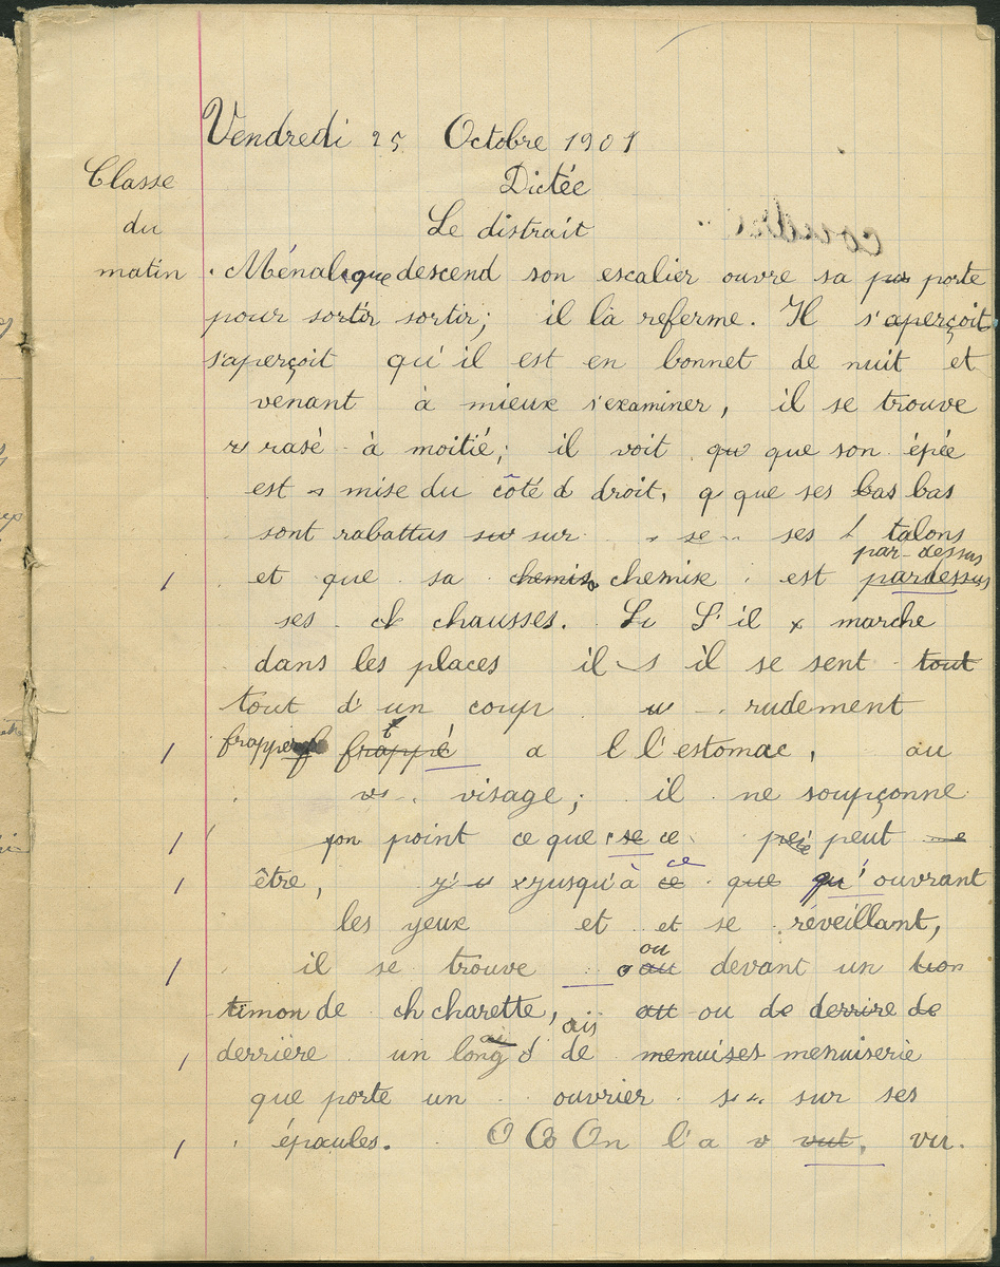 Vendredi 25 Octobre 1901
Classe
du
matin
Dictée
Le distrait
Ménalque descend son escalier ouvre sa por porte
pour sortir sortir; il la referme. Il s'aperçoit
s'aperçoit qu'il est en bonnet de nuit et
venant à mieux s'examiner, il se trouve
r rasé à moitié; il voit qu que son épée
est mise du côté d droit, q que ses bas bas
sont rabattus sur sur se ses t talons
par-dessus
/ et que sa chemise chemise est pardessus
ses ch chausses. S'il marche
dans les places il il se sent tout
tout d'un coup rudement
/ frapper frappé a l l'estomac, au
v visage; il ne soupçonne
/ pon point ce que se ce peut
ce
/ être, jusqu'à ce que qu'ouvrant
les yeux et et se réveillant,
ou
/ il se trouve o au devant un lion
timon de ch charette, au ou de derrire de
ais
/ derrière un long d' de menuises menuiserie
que porte un ouvrier sur ses
/ épaules. O O On l'a v vut, vu.